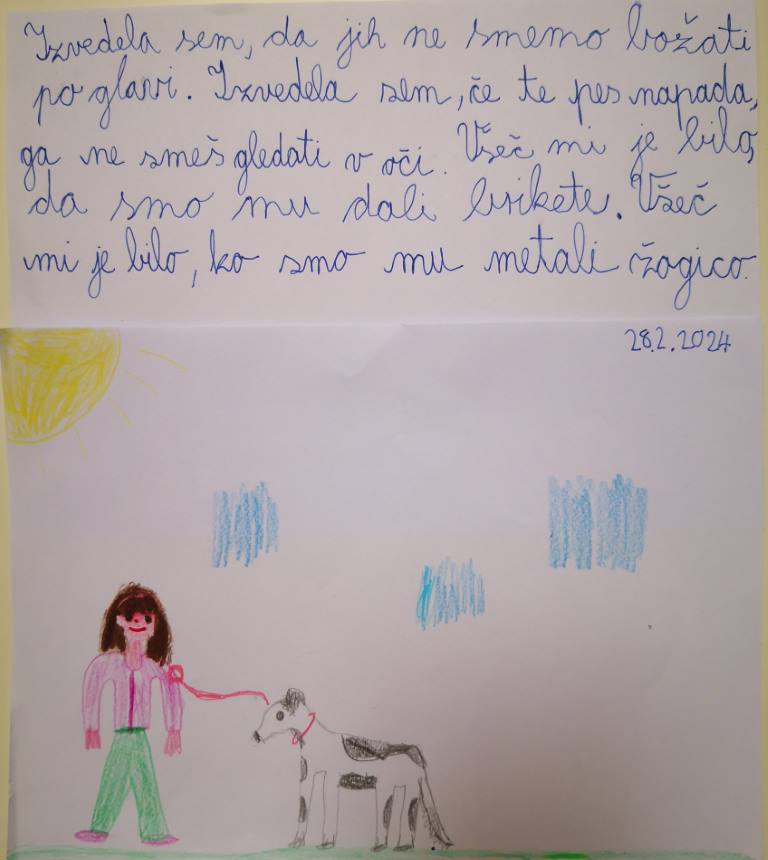 Izvedela sem, da jih ne smemo božati
po glavi. Izvedela sem, če te pes napada,
ga ne smeš gledati v oči. Všeč mi je bilo,
da smo mu dali brikete. Všeč
mi je bilo, ko smo mu metali žogico.
28.2.2024